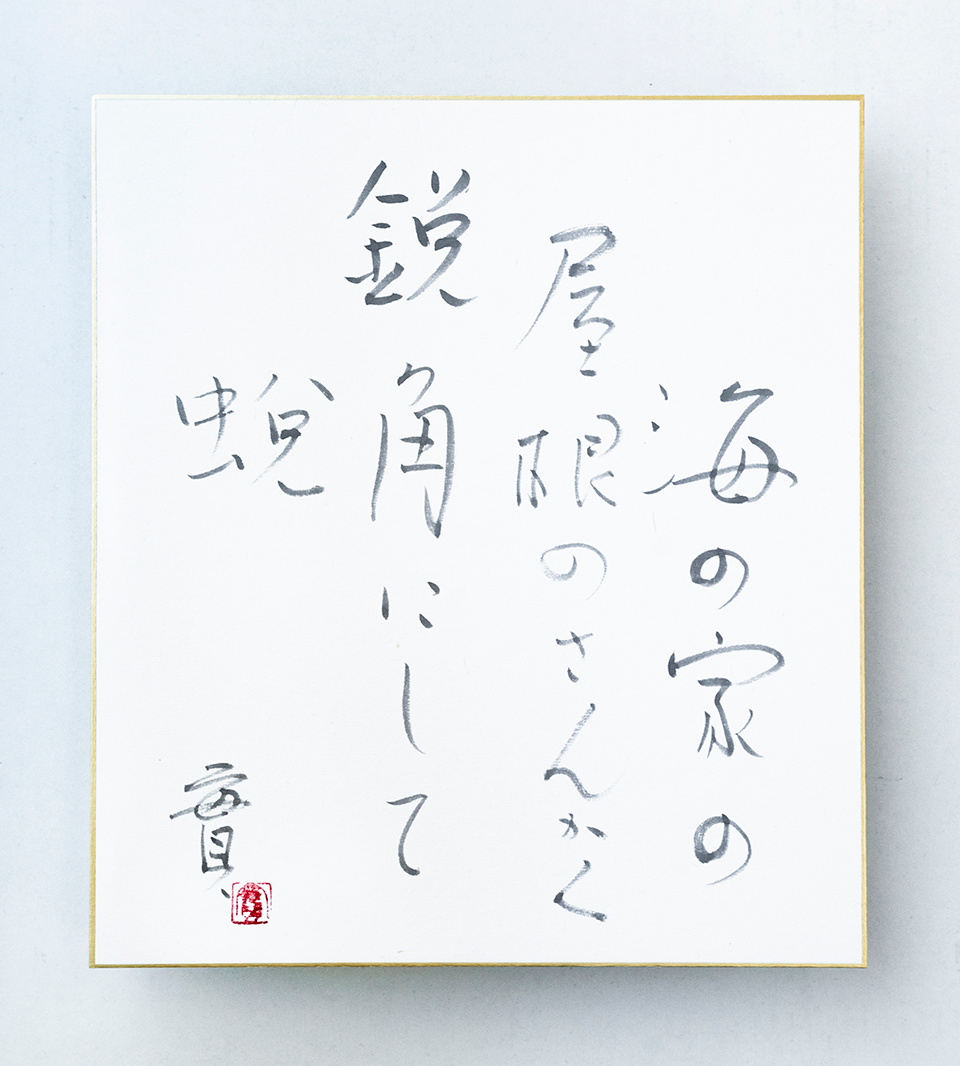 海の家の
屋根のさんかく
鋭角にして
蛻
實